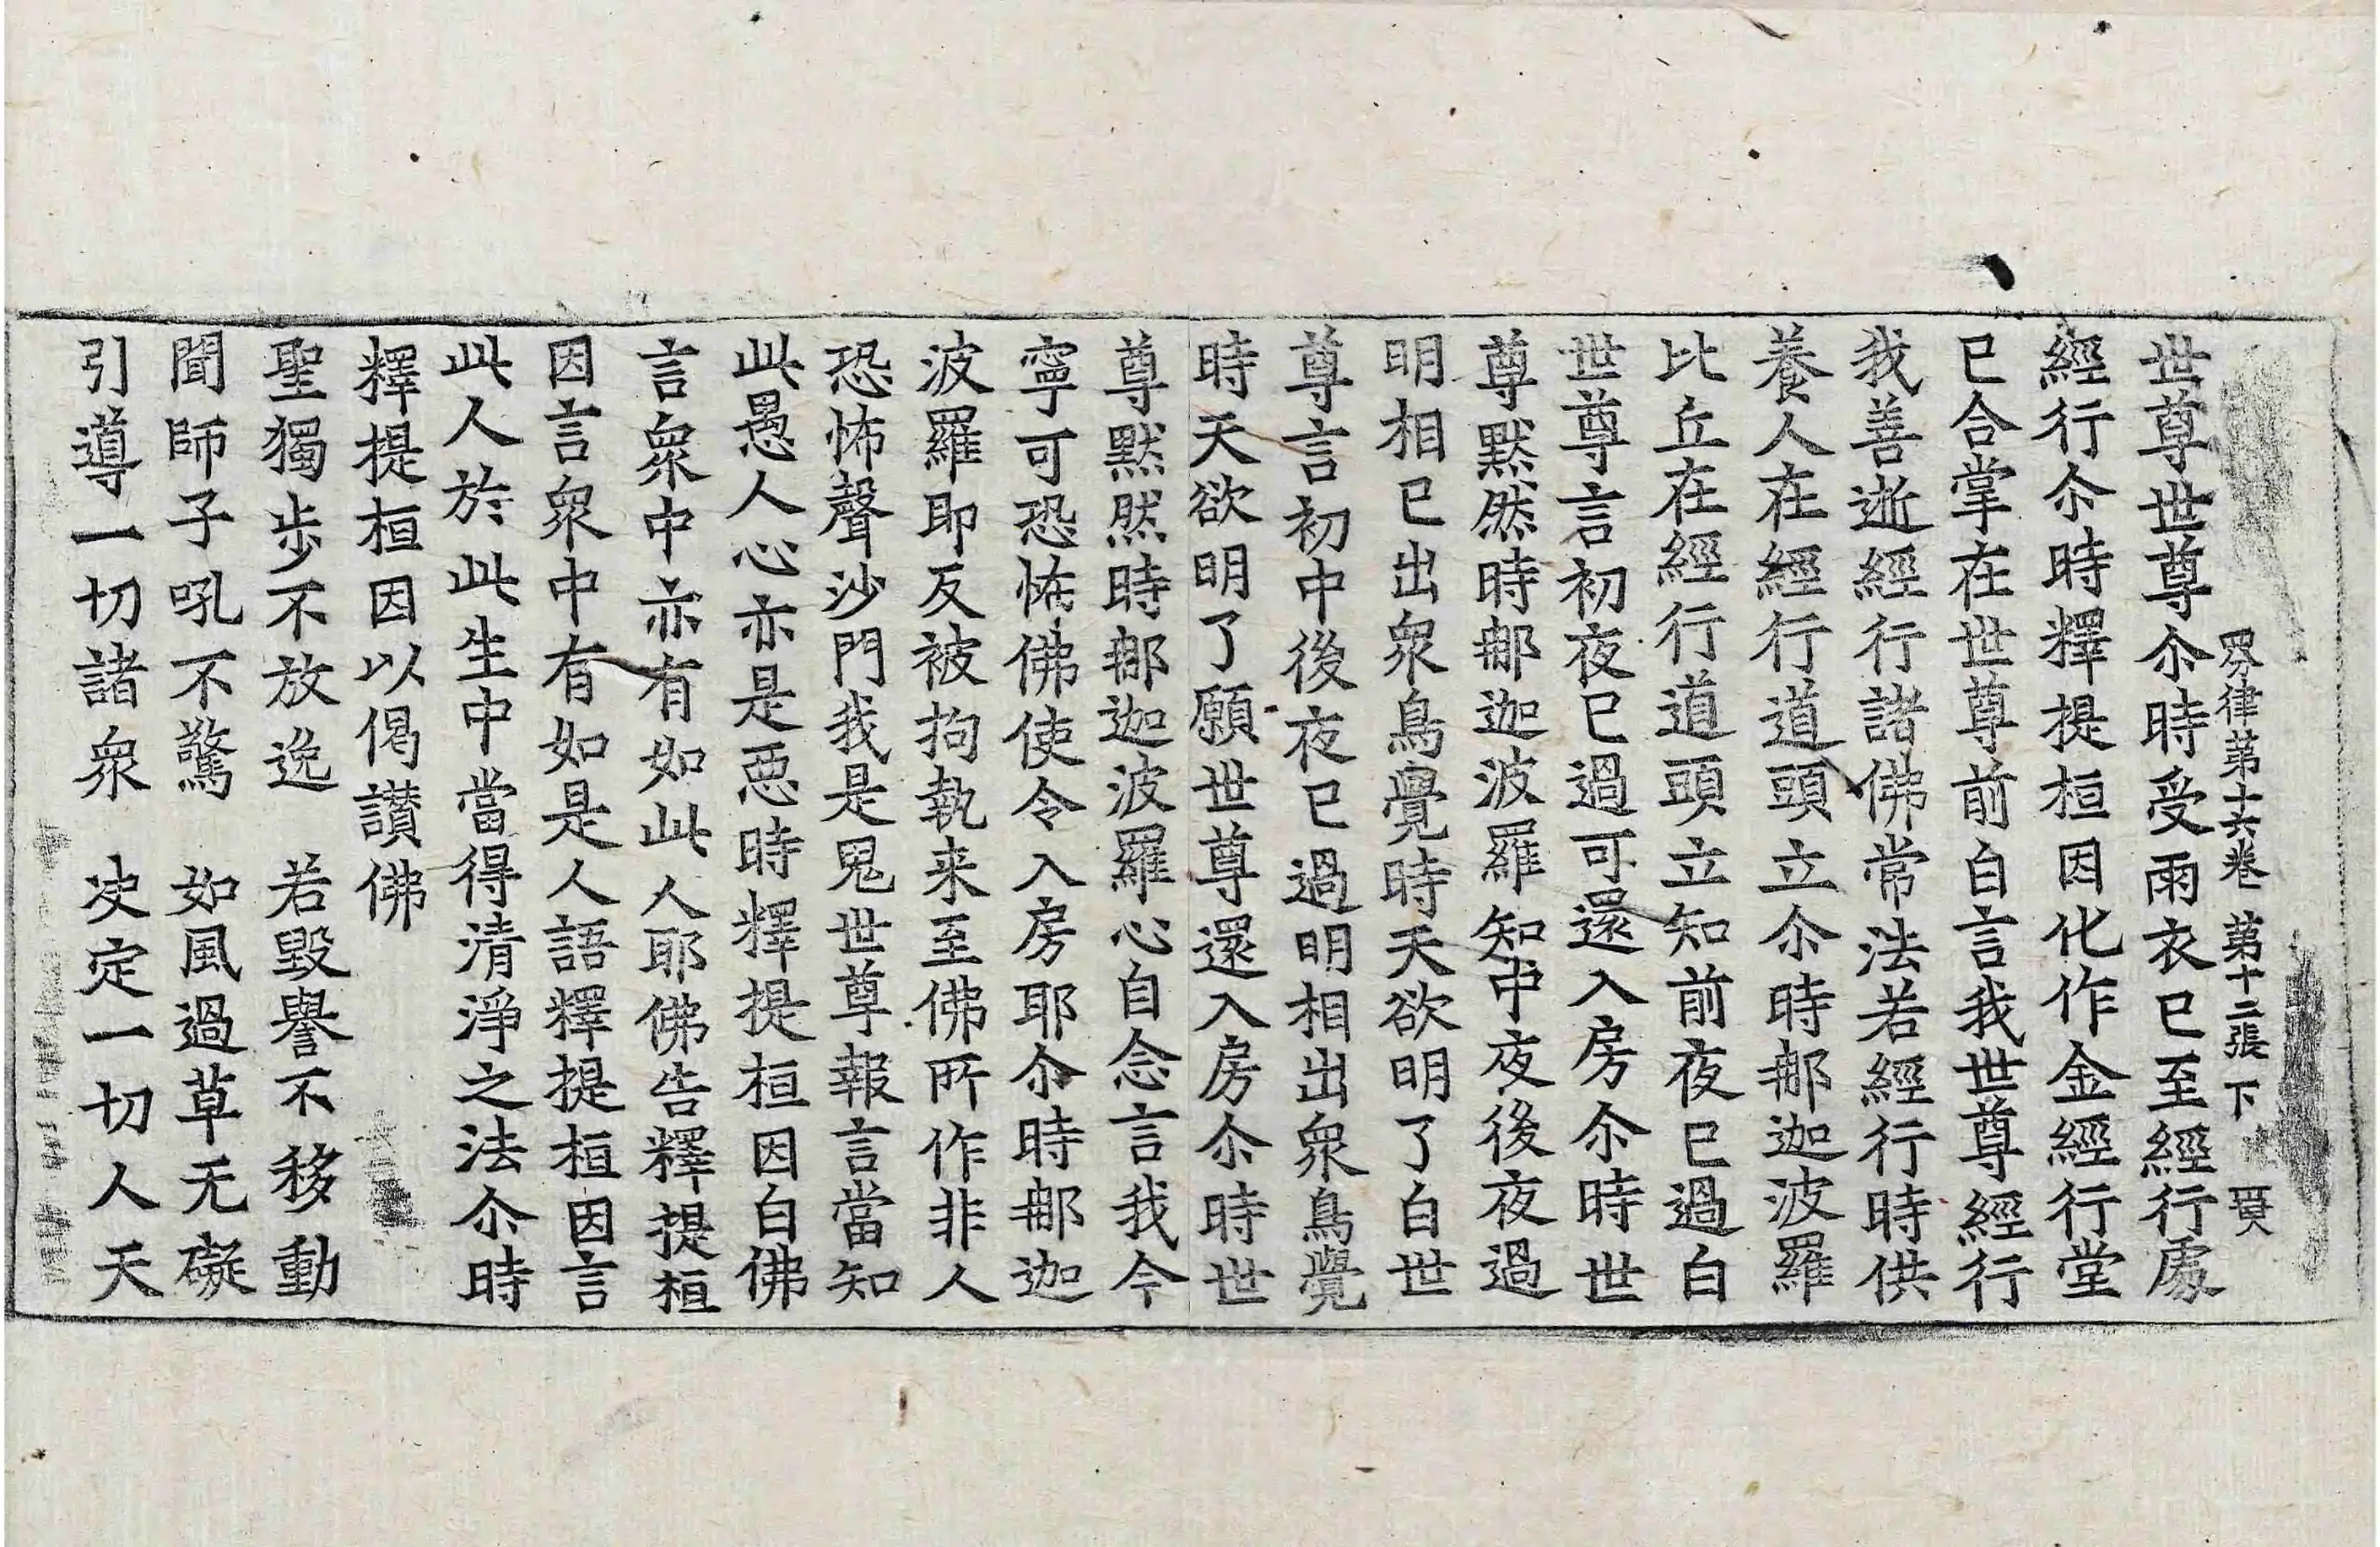 四分律第十六卷 第十二張 下
世尊世尊尒時受雨衣已至經行處
經行尒時釋提桓因化作金經行堂
已合掌在世尊前白言我世尊經行
我善逝經行諸佛常法若經行時供
養人在經行道頭立尒時那迦波羅
比丘在經行道頭立知前夜已過白
世尊言初夜已過可還入房尒時世
尊默然時那迦波羅知中夜後夜過
明相已出衆鳥覺時天欲明了白世
尊言初中後夜已過明相出衆鳥覺
時天欲明了願世尊還入房尒時世
尊默然時那迦波羅心自念言我今
寧可恐怖佛使令入房耶尒時那迦
波羅即反被拘執来至佛所作非人
恐怖聲沙門我是鬼世尊報言當知
此愚人心亦是惡時釋提桓因白佛
言衆中亦有如此人耶佛告釋提桓
因言衆中有如是人語釋提桓因言
此人於此生中當得清淨之法尒時
釋提桓因以偈讃佛
聖獨步不放逸　若毀譽不移動
聞師子吼不驚　如風過草无礙
引導一切諸衆　决定一切人天